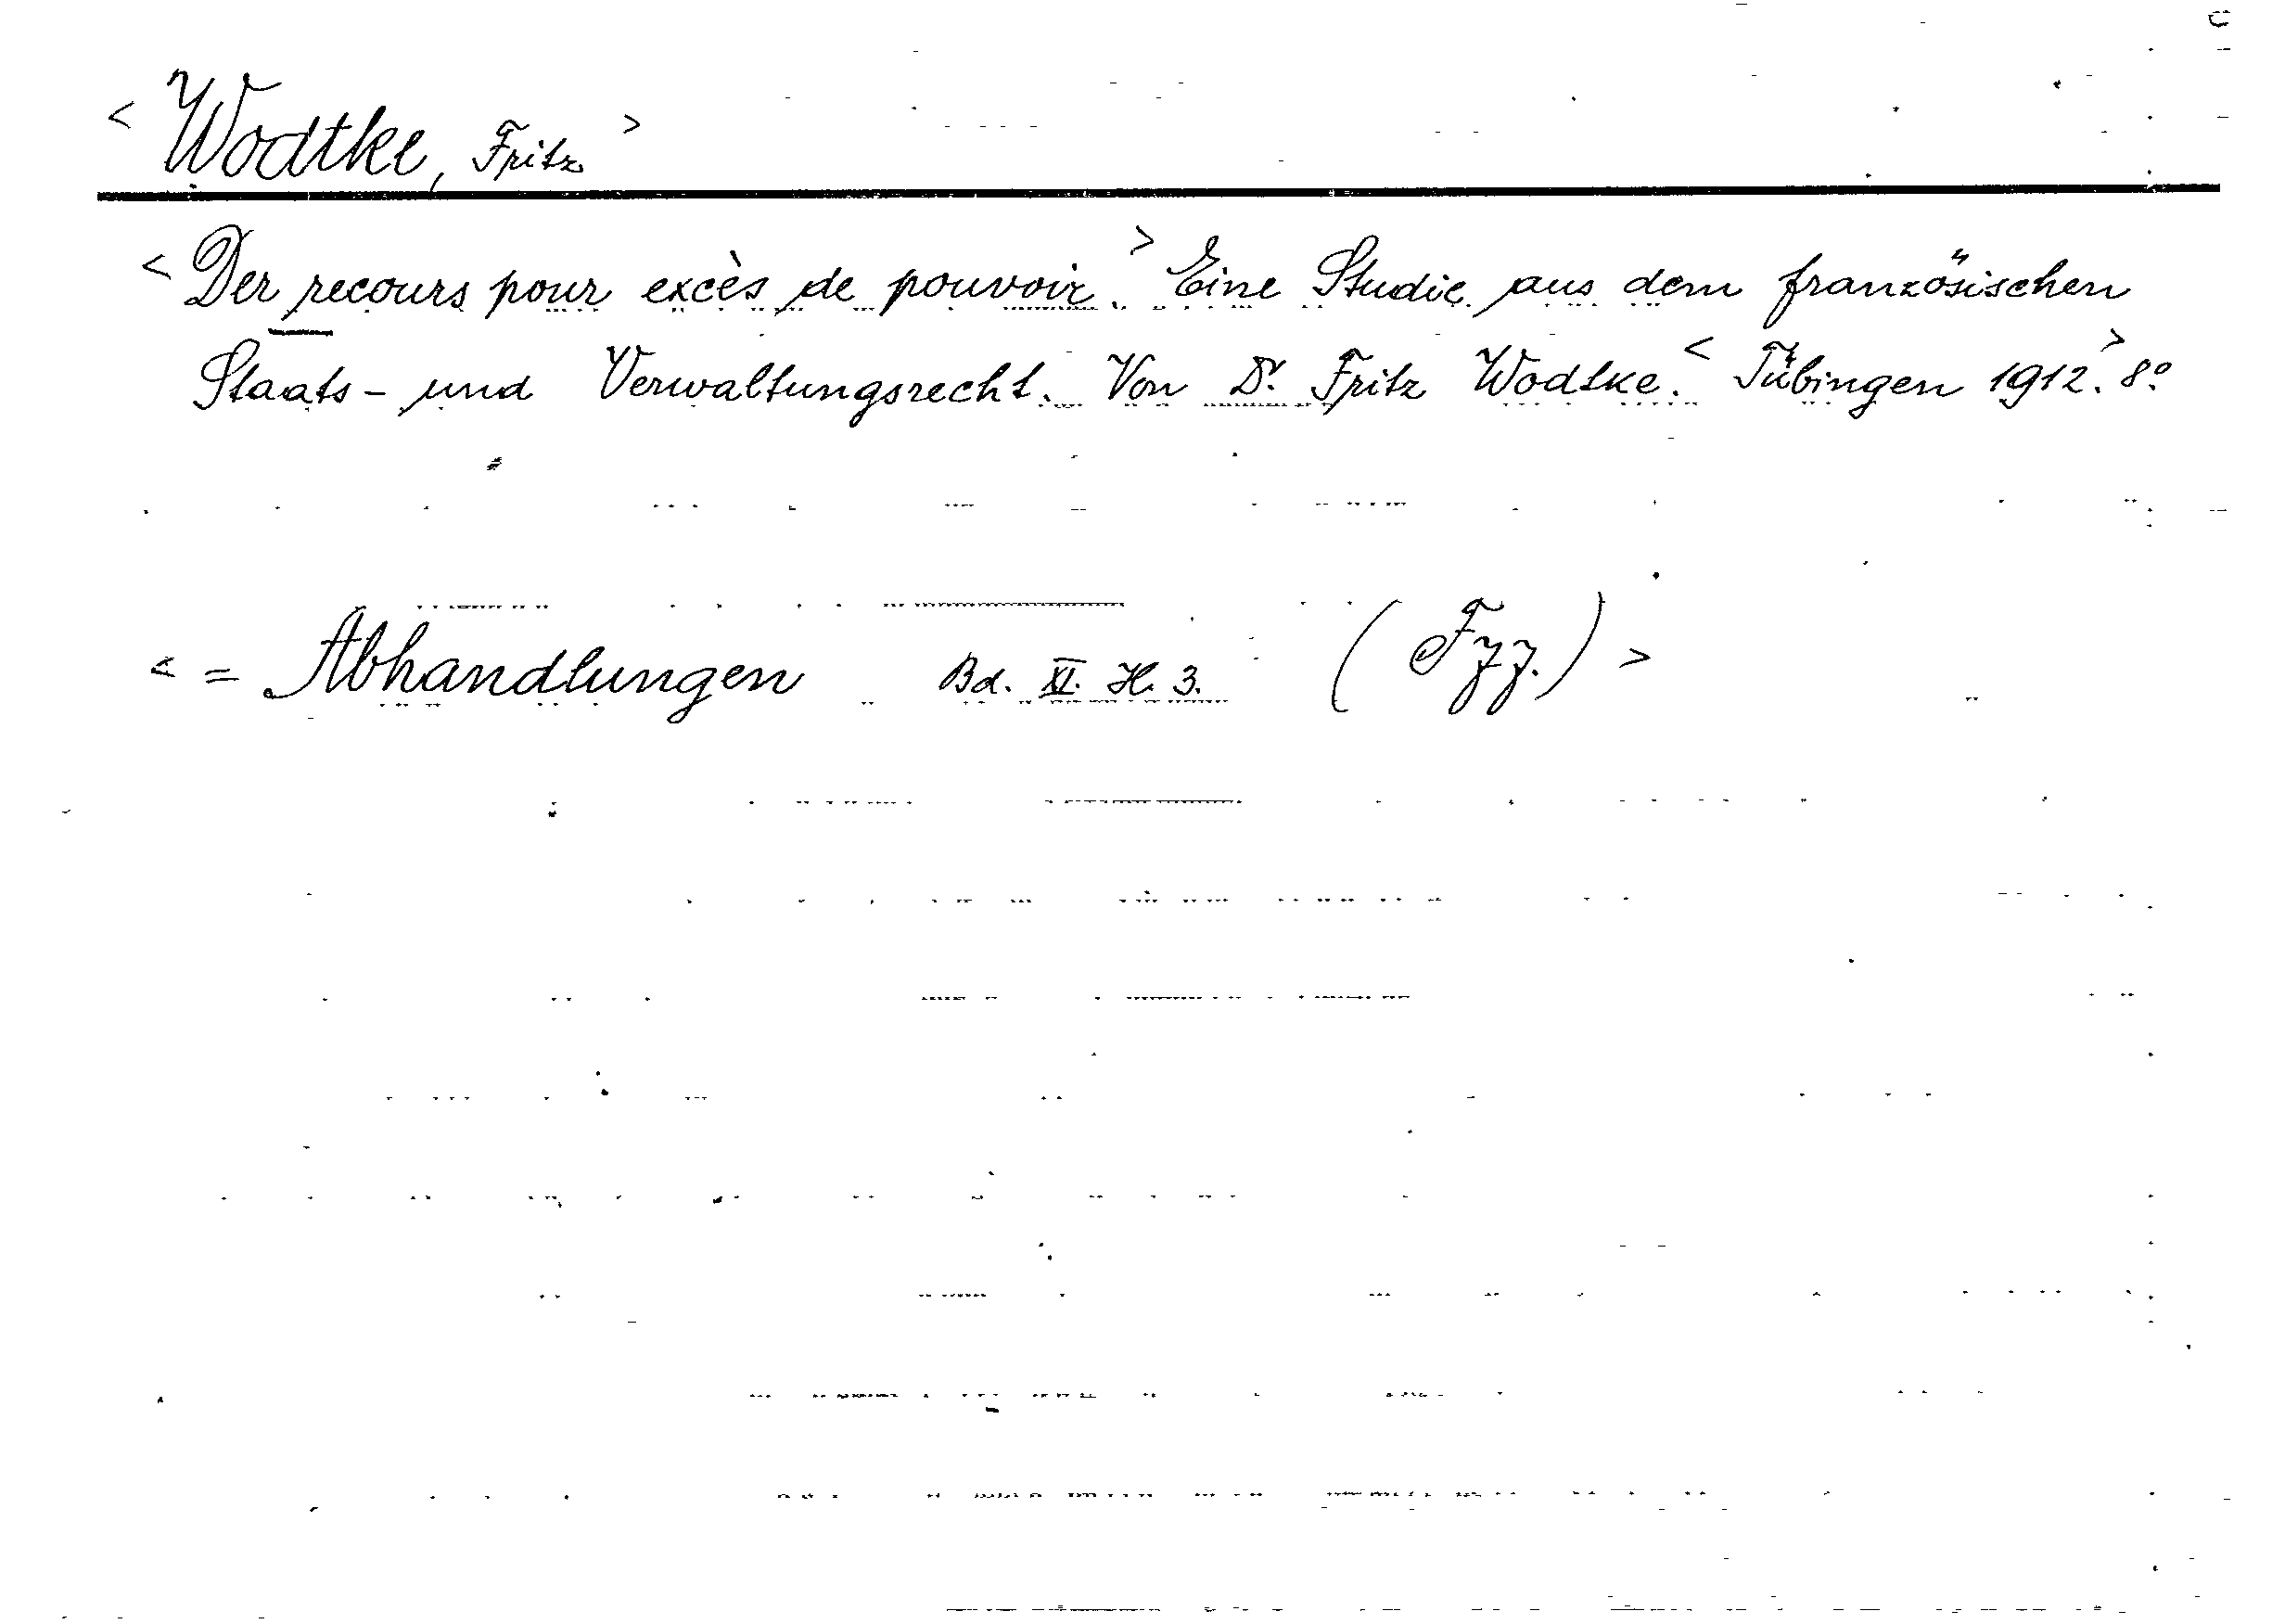 < Wodtke, Fritz >
< Der recours pour excès de pouvoir. > Eine Studie aus dem französischen
Staats- und Verwaltungsrecht. Von Dr. Fritz Wodtke. < Tübingen 1912. > 8º
< = Abhandlungen Bd. XI. H. 3. (Fzz.) >